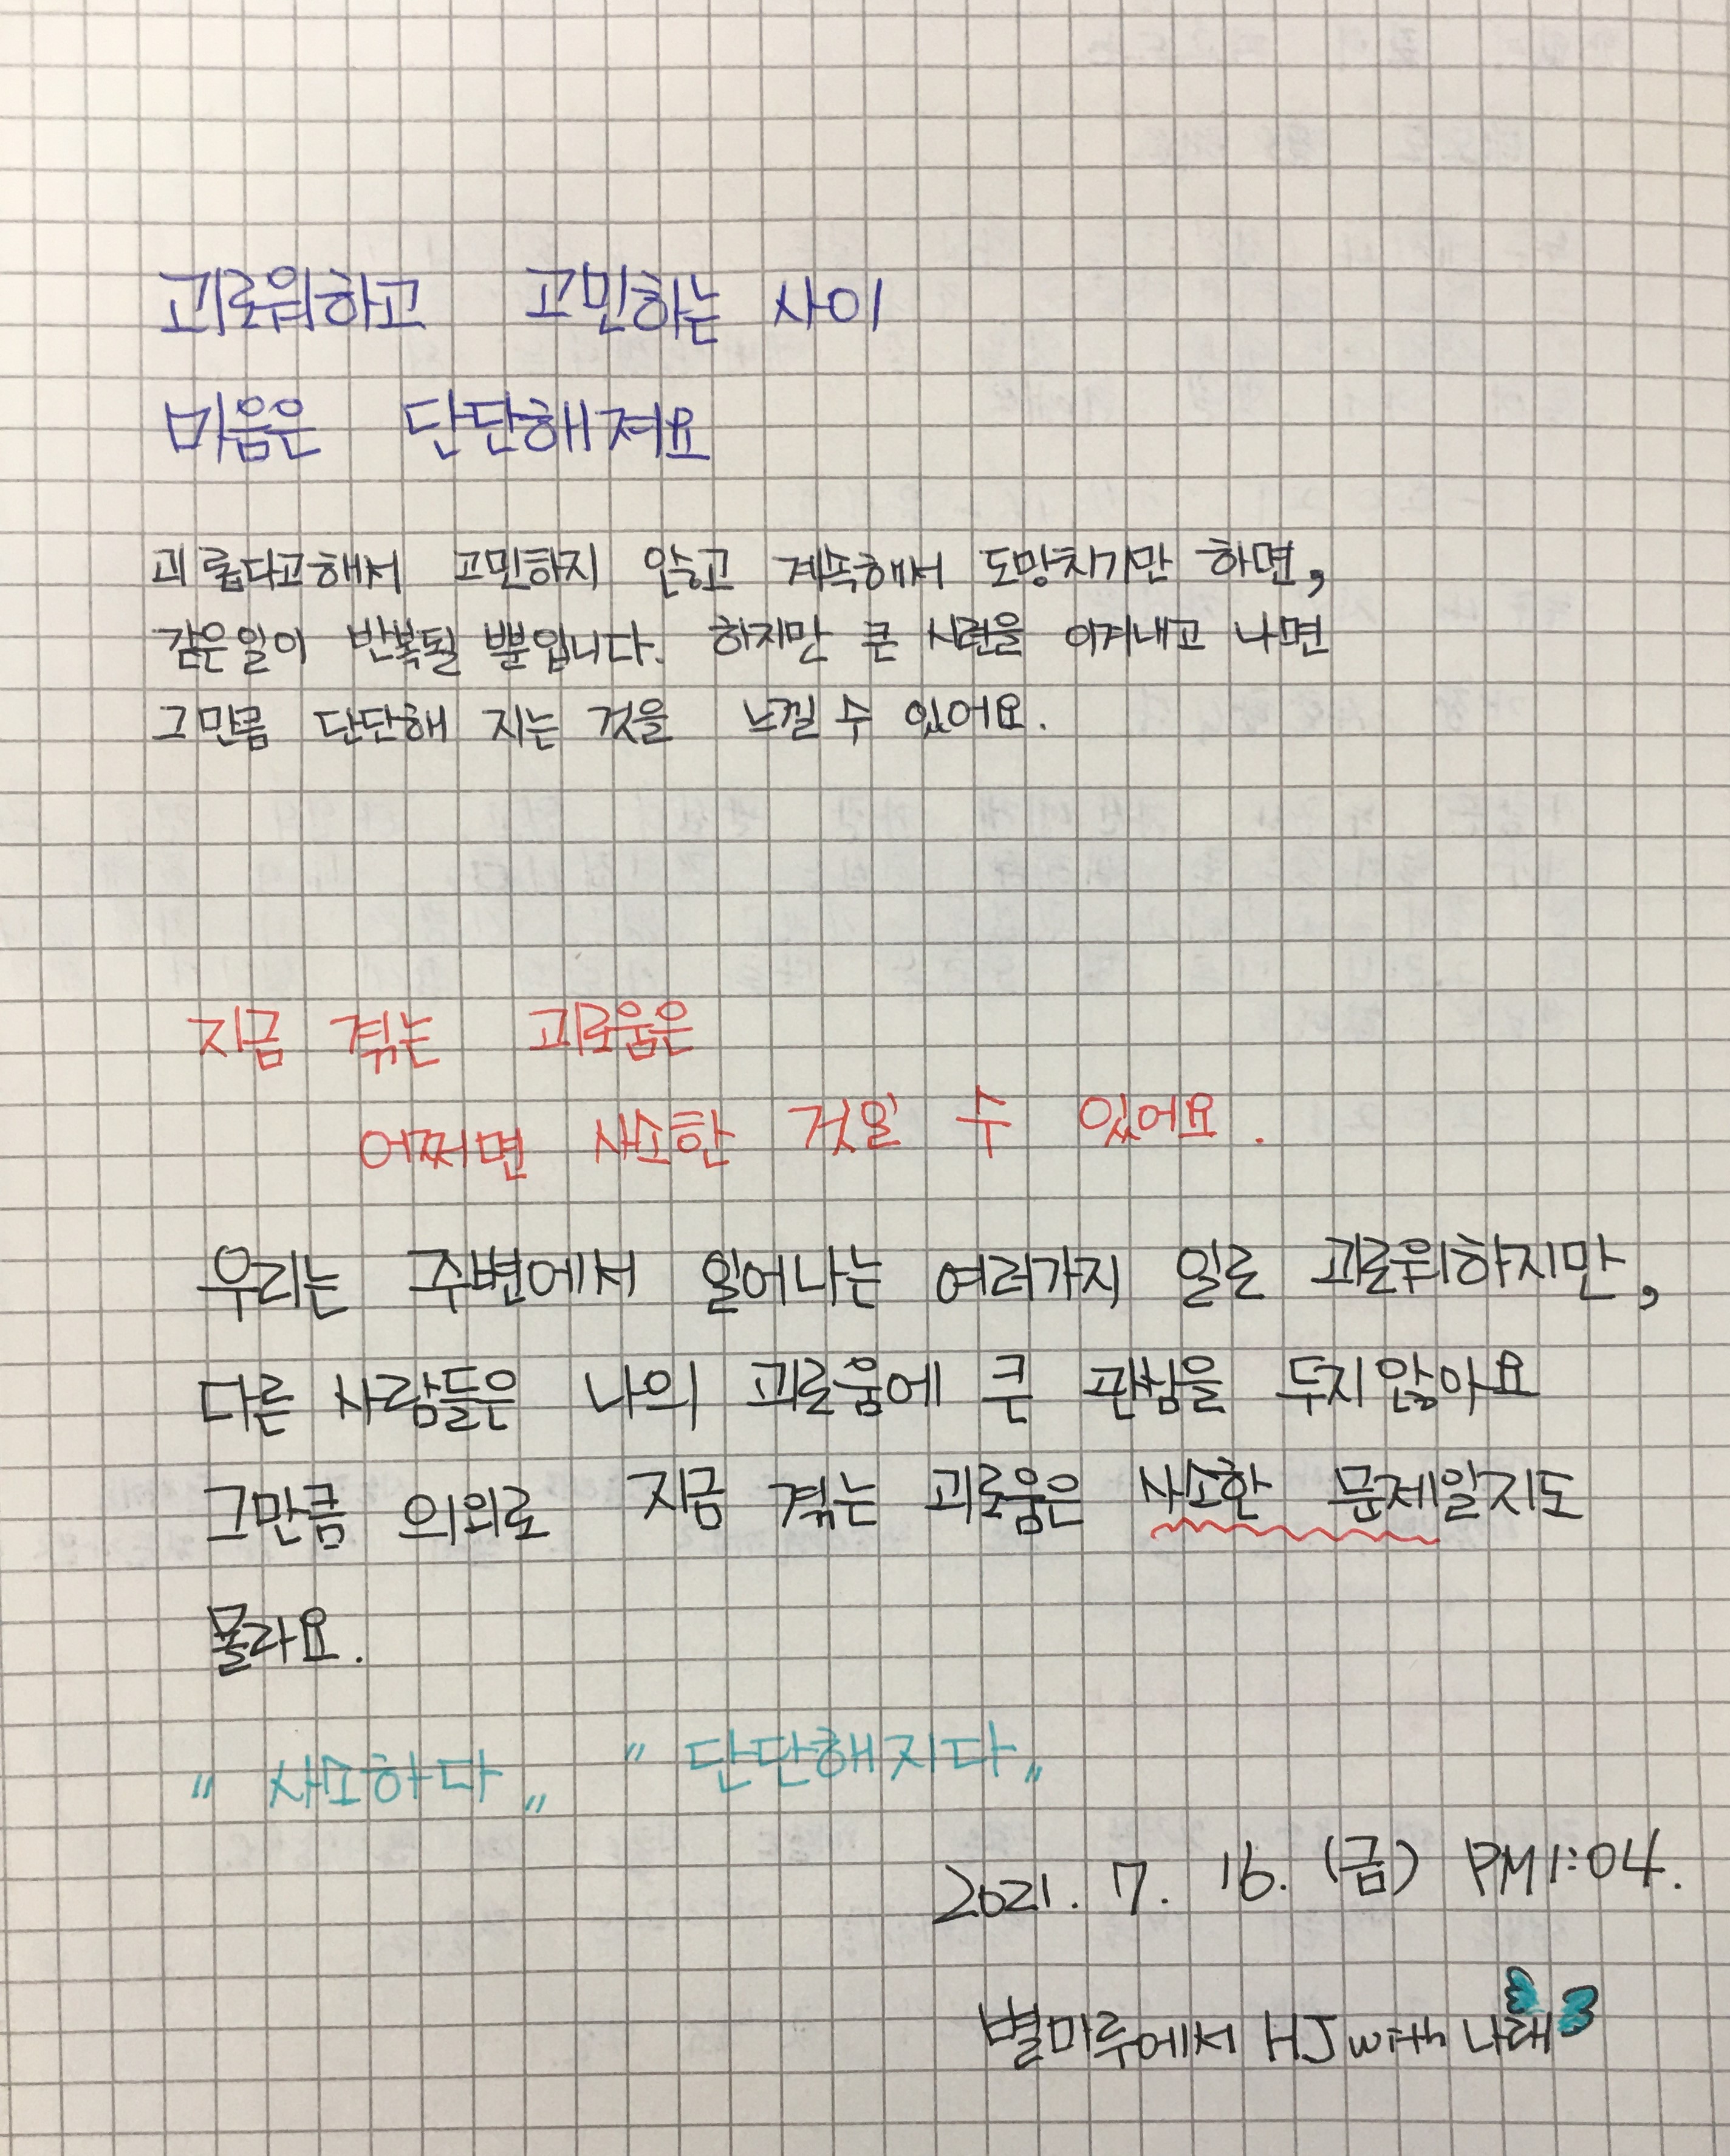 괴로워하고 고민하는 사이
마음은 단단해져요
괴롭다고해서 고민하지 않고 계속해서 도망치기만 하면,
같은일이 반복될 뿐입니다. 하지만 큰 시련을 이겨내고 나면
그만큼 단단해 지는 것을 느낄 수 있어요.
지금 겪는 괴로움은
어쩌면 사소한 것일 수 있어요.
우리는 주변에서 일어나는 여러가지 일로 괴로워하지만,
다른 사람들은 나의 괴로움에 큰 관심을 두지않아요
그만큼 의외로 지금 겪는 괴로움은 사소한 문제일지도
몰라요.
" 사소하다 " " 단단해지다 "
2021. 7. 16. (금) PM 1:04.
별마루에서 HJ with 나래